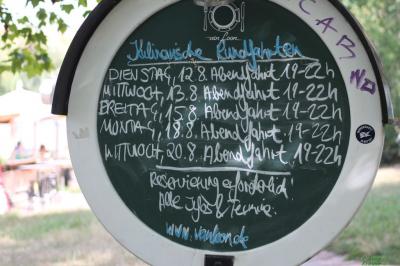 van Loon
Kulinarische Rundfahrten
DIENSTAG, 12.8. Abendfahrt 19-22h
MITTWOCH, 13.8. Abendfahrt 19-22h
FREITAG, 15.8. Abendfahrt 19-22h
MONTAG, 18.8. Abendfahrt 19-22h
MITTWOCH, 20.8. Abendfahrt, 19-22h
Reservierung erforderlich!
Alle Infos & Termine:
www.vanloon.de